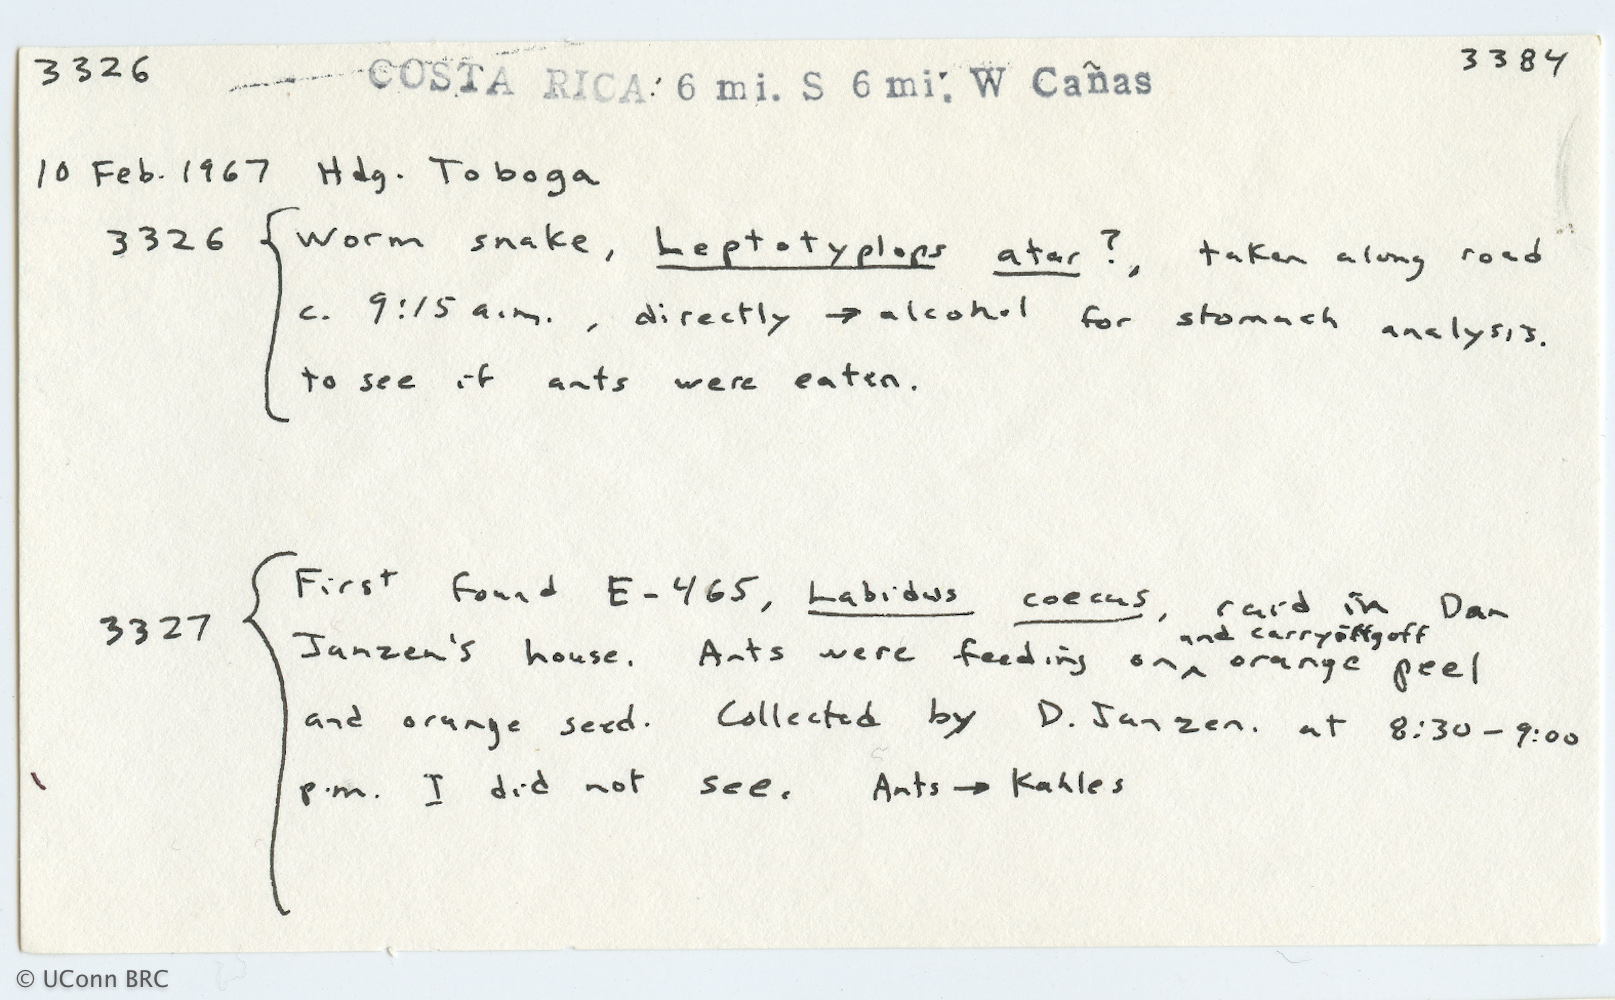 3326 COSTA RICA: 6 mi. S 6 mi. W Cañas 3384
10 Feb. 1967 Hdg. Toboga
3326 { Worm snake, Leptotyplops atar?, taken along road
c. 9:15 a.m., directly → alcohol for stomach analysis.
to see if ants were eaten.
3327 { First found E-465, Labidus coecus, raid in Dan
and carrying off
Janzen's house. Ants were feeding on ^ orange peel
and orange seed. Collected by D. Janzen. at 8:30-9:00
p.m. I did not see. Ants → Kahles
© UConn BRC